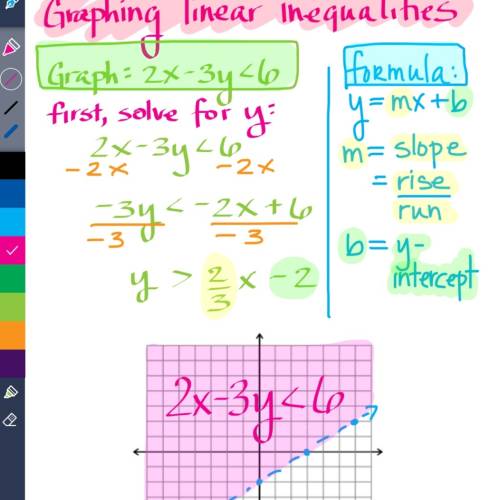 Graphing linear inequalities
Graph: 2x-3y<6
first, solve for y:
2x-3y<6
-2x -2x
-3y < -2x+6
-3 -3
y > 2/3 x -2
formula:
y = mx+b
m = slope
= rise
run
b = y-
intercept
2x-3y<6